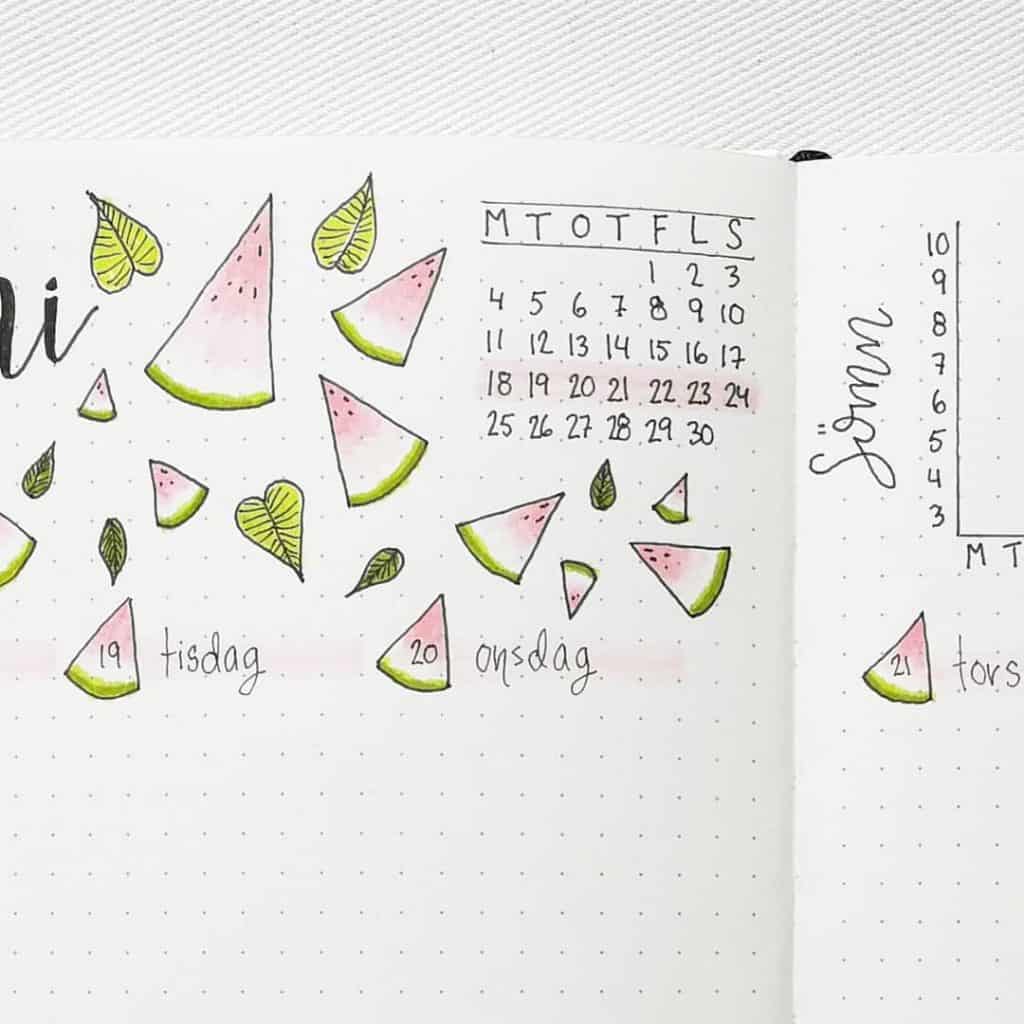 ri
M T O T F L S
1 2 3
4 5 6 7 8 9 10
11 12 13 14 15 16 17
18 19 20 21 22 23 24
25 26 27 28 29 30
19 tisdag
20 onsdag
Sömn
10
9
8
7
6
5
4
3
M T
21 tors